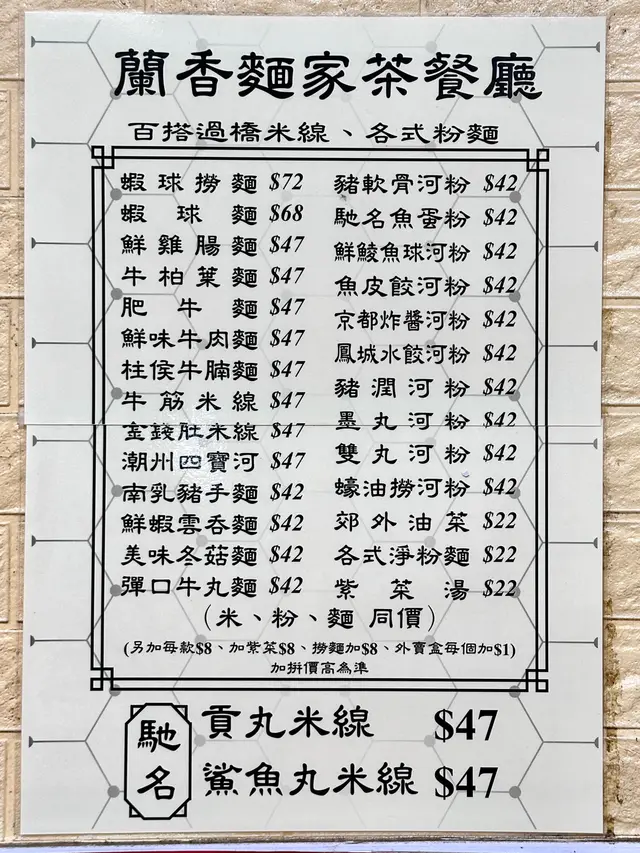 蘭香麵家茶餐廳
百搭過橋米線、各式粉麵
蝦球撈麵 $72
蝦球麵 $68
鮮雞腸麵 $47
牛柏葉麵 $47
肥牛麵 $47
鮮味牛肉麵 $47
柱侯牛腩麵 $47
牛筋米線 $47
金錢肚米線 $47
潮州四寶河 $47
南乳豬手麵 $42
鮮蝦雲吞麵 $42
美味冬菇麵 $42
彈口牛丸麵 $42
豬軟骨河粉 $42
馳名魚蛋粉 $42
鮮鯪魚球河粉 $42
魚皮餃河粉 $42
京都炸醬河粉 $42
鳳城水餃河粉 $42
豬潤河粉 $42
墨丸河粉 $42
雙丸河粉 $42
蠔油撈河粉 $42
郊外油菜 $22
各式淨粉麵 $22
紫菜湯 $22
(米、粉、麵 同價)
(另加每款$8、加紫菜$8、撈麵加$8、外賣盒每個加$1)
加拼價高為準
馳名
貢丸米線 $47
鯊魚丸米線 $47